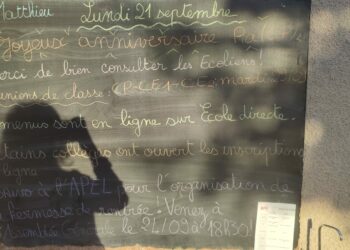 Matthieu Lundi 21 septembre
Joyeux anniversaire
erci de bien consulter les Ecoliens!
unions de classe: CP-CE1-CE2 mardi
menus sont en ligne sur Ecole directe.
tains collèges ont ouvert les inscriptions
ligne
à l'APEL pour l'organisation de
kermesse de rentrée! Venez à
Générale le 24/09 à 18h30!